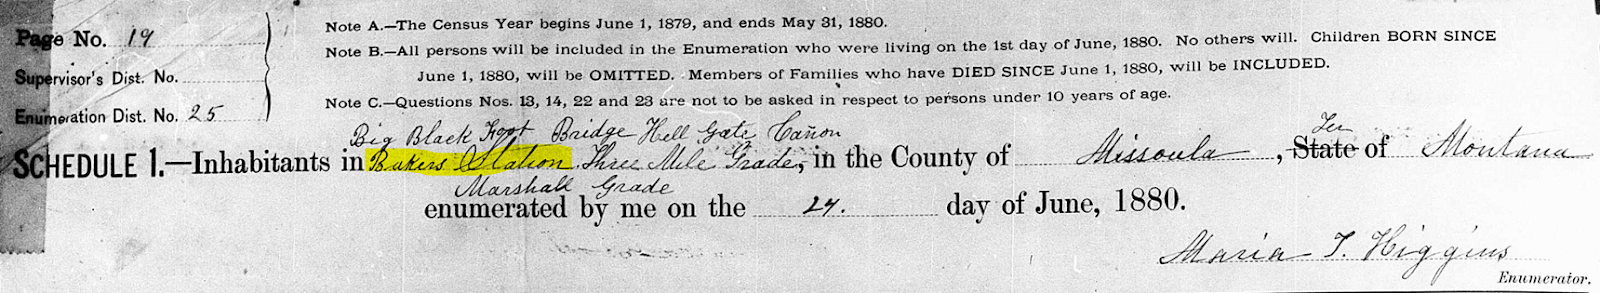 Page No. 19
Supervisor's Dist. No.
Enumeration Dist. No. 25
Note A.—The Census Year begins June 1, 1879, and ends May 31, 1880.
Note B.—All persons will be included in the Enumeration who were living on the 1st day of June, 1880. No others will. Children BORN SINCE
June 1, 1880, will be OMITTED. Members of Families who have DIED SINCE June 1, 1880, will be INCLUDED.
Note C.—Questions Nos. 13, 14, 22 and 23 are not to be asked in respect to persons under 10 years of age.
Big Black Foot Bridge Hell Gate Cañon
Ter
SCHEDULE 1.—Inhabitants in Bakers Station Three Mile Grade, in the County of Missoula, State of Montana
Marshall Grade
enumerated by me on the 24. day of June, 1880.
Maria T. Higgins
Enumerator.